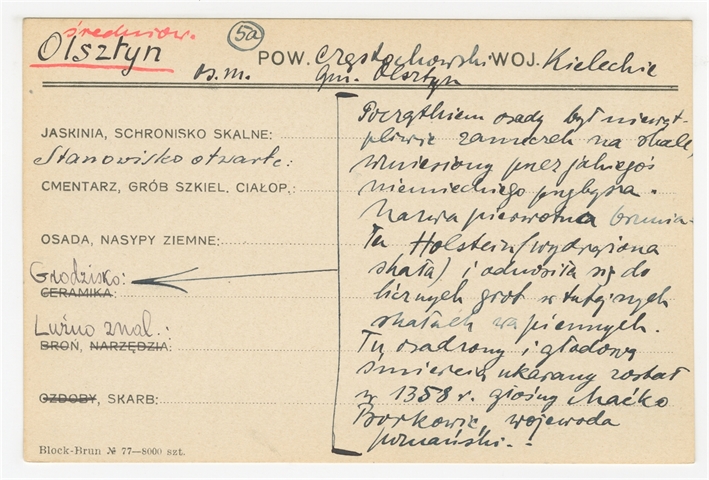 średniow. 5a
Olsztyn POW. Częstochowski WOJ. Kieleckie
os.m. gm. Olsztyn
JASKINIA, SCHRONISKO SKALNE:
Stanowisko otwarte:
CMENTARZ, GRÓB SZKIEL. CIAŁOP.:
OSADA, NASYPY ZIEMNE:
Grodzisko:
CERAMIKA:
Luźno znal.:
BROŃ, NARZĘDZIA:
OZDOBY, SKARB:
Block-Brun № 77—8000 szt.
Początkiem osady był niewąt-
pliwie zameczek na skale,
wzniesiony przez jakiegoś
niemieckiego przybysza.
Nazwa pierwotna brzmia-
ła Holstein (wydrążona
skała) i odnosiła się do
licznych grot w tutejszych
skałach wapiennych.
Tu osadzony i głodową
śmiercią ukarany został
w 1358 r. głośny Maćko
Borkowic, wojewoda
poznański.